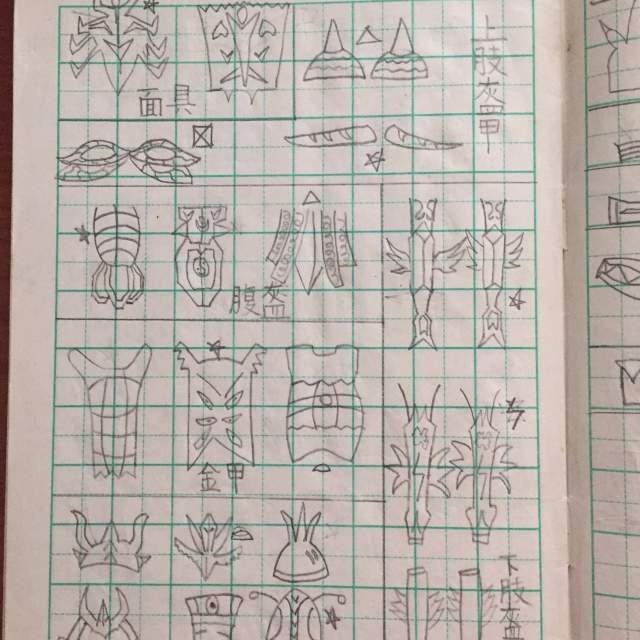 上肢盔甲
面具
腹盔
金甲
下肢盔